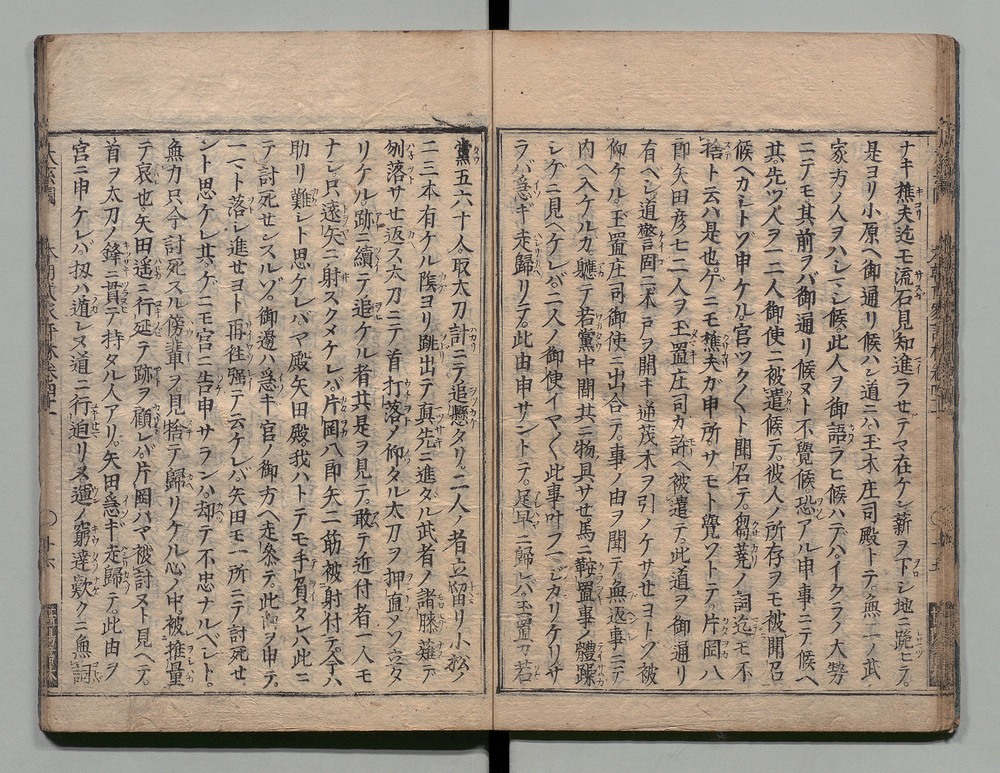 ナキ樵夫迄モ流石見知進ラせテマ在ケン薪ヲ下シ地ニ跪ヒテ。
是ヨリ小原へ御通リ候ハン道ニハ玉木庄司殿トテ無二ノ武
家方ノ人ヲハシマシ候。此人ヲ御語ラヒ候ハテハ。イクラノ大勢
ニテモ其前ヲバ御通リ候ヌト不覺候。恐アル申事ニテ候へ
共。先ツ人ヲ一二人御使ニ被遣候テ。彼人ノ所存ヲモ被聞召
候ヘカシトゾ申ケル。宮ツク〱ト聞召テ。芻蕘ノ詞迄モ不
捨ト云ハ是也。ゲニモ樵夫ガ申所。サモト覺ルトテ。片岡八
郎矢田彦七二人ヲ玉置庄司カ許ヘ被遣テ。此道ヲ御通リ
有ヘシ道警固ニ木戸ヲ開キ逆茂木ヲ引ノケサせヨトゾ被
仰ケル。玉置庄司御使ニ出合テ。事ノ由ヲ聞テ無返事ニテ
内ヘ入ケルカ。軈テ若黨中間共ニ物具サせ馬ニ鞍置事ノ體躁
シゲニ見ヘケレバ。二人ノ御使イヤ〱此事叶フマシカリケリ。サ
ラバ急ギ走歸リテ。此由申サントテ。足早ニ歸レバ。玉置カ若
黨五六十人取太刀計ニテ追懸タリ。二人ノ者立留リ小松ノ
二三本有ケル陰ヨリ跳出テ真先ニ進タル武者ノ諸膝薙テ
刎落サせ返ス太刀ニテ首打落ノ仰タル太刀ヲ押直メソ立タ
リケル。跡ニ續テ追ケル者共是ヲ見テ。敢テ近付者一人モ
ナシ只遠矢ニ射スクメケレバ。片岡八郎矢二筋被射付テ。今ハ
助リ難シト思ケレバヤ殿矢田殿。我ハトテモ手屓タレバ此ニ
テ討死せンスルゾ。御邊ハ急ギ宮ノ御方ヘ走参テ。此由ヲ申テ。
一マト落シ進せヨト再往強テ云ケレバ。矢田モ一所ニテ討死せ
ント思ケレ共。ゲニモ宮ニ告申サランハ。却テ不忠ナルベシト。
無力只今討死スル傍輩ヲ。見捨テ歸リケル心ノ中。被推量
テ哀也。矢田遥ニ行延テ跡ヲ顧レバ。片岡ハヤ被討ヌト見ヘテ。
首ヲ太刀ノ鋒ニ貫テ持タル人アリ。矢田急ギ走歸テ。此由ヲ
宮ニ申ケレバ。扨ハ道レヌ道ニ行迫リヌ。運ノ窮達歎クニ無詞